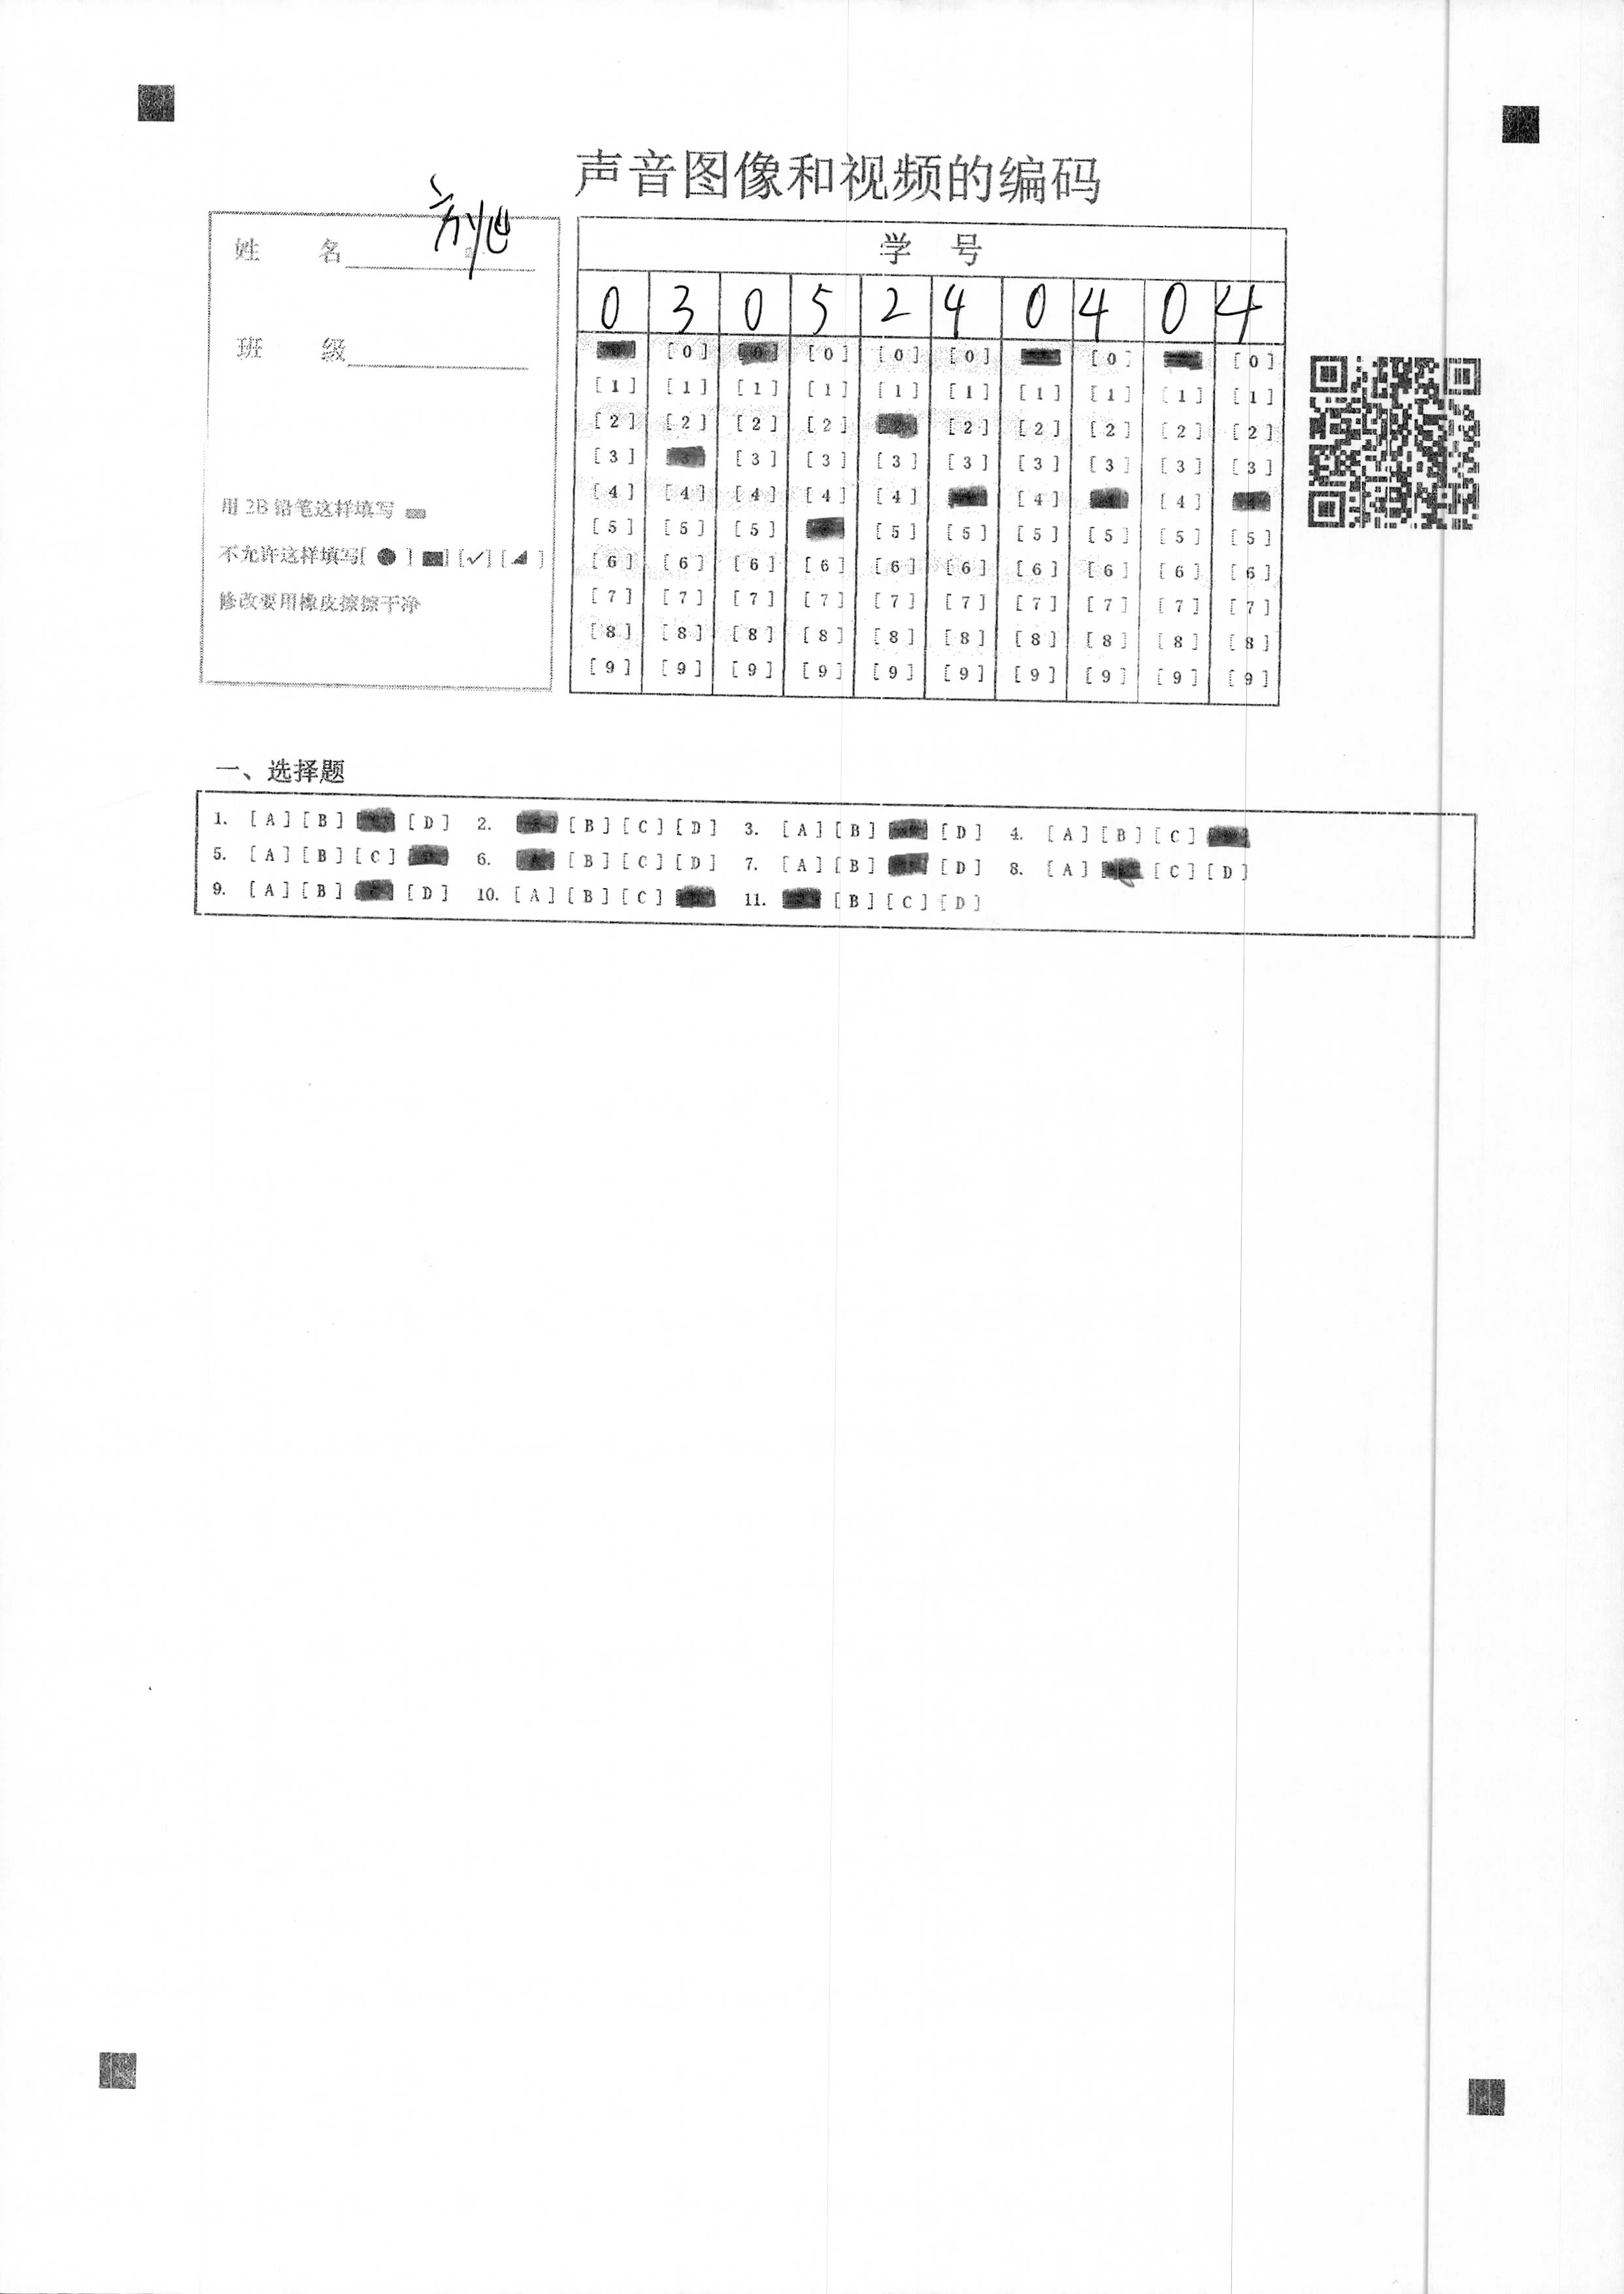 声音图像和视频的编码
姓 名
班 级
用 2B 铅笔这样填写
不允许这样填写[ ● ] [■] [✓] [◢]
修改要用橡皮擦擦干净
学 号
0 3 0 5 2 4 0 4 0 4
[0] [0] [0] [0] [0] [0]
[1] [1] [1] [1] [1] [1] [1] [1] [1] [1]
[2] [2] [2] [2] [2] [2] [2] [2] [2]
[3] [3] [3] [3] [3] [3] [3] [3] [3]
[4] [4] [4] [4] [4] [4] [4]
[5] [5] [5] [5] [5] [5] [5] [5] [5]
[6] [6] [6] [6] [6] [6] [6] [6] [6] [6]
[7] [7] [7] [7] [7] [7] [7] [7] [7] [7]
[8] [8] [8] [8] [8] [8] [8] [8] [8] [8]
[9] [9] [9] [9] [9] [9] [9] [9] [9] [9]
一、选择题
1. [A] [B] [D] 2. [B] [C] [D] 3. [A] [B] [D] 4. [A] [B] [C]
5. [A] [B] [C] 6. [B] [C] [D] 7. [A] [B] [D] 8. [A] [C] [D]
9. [A] [B] [D] 10. [A] [B] [C] 11. [B] [C] [D]